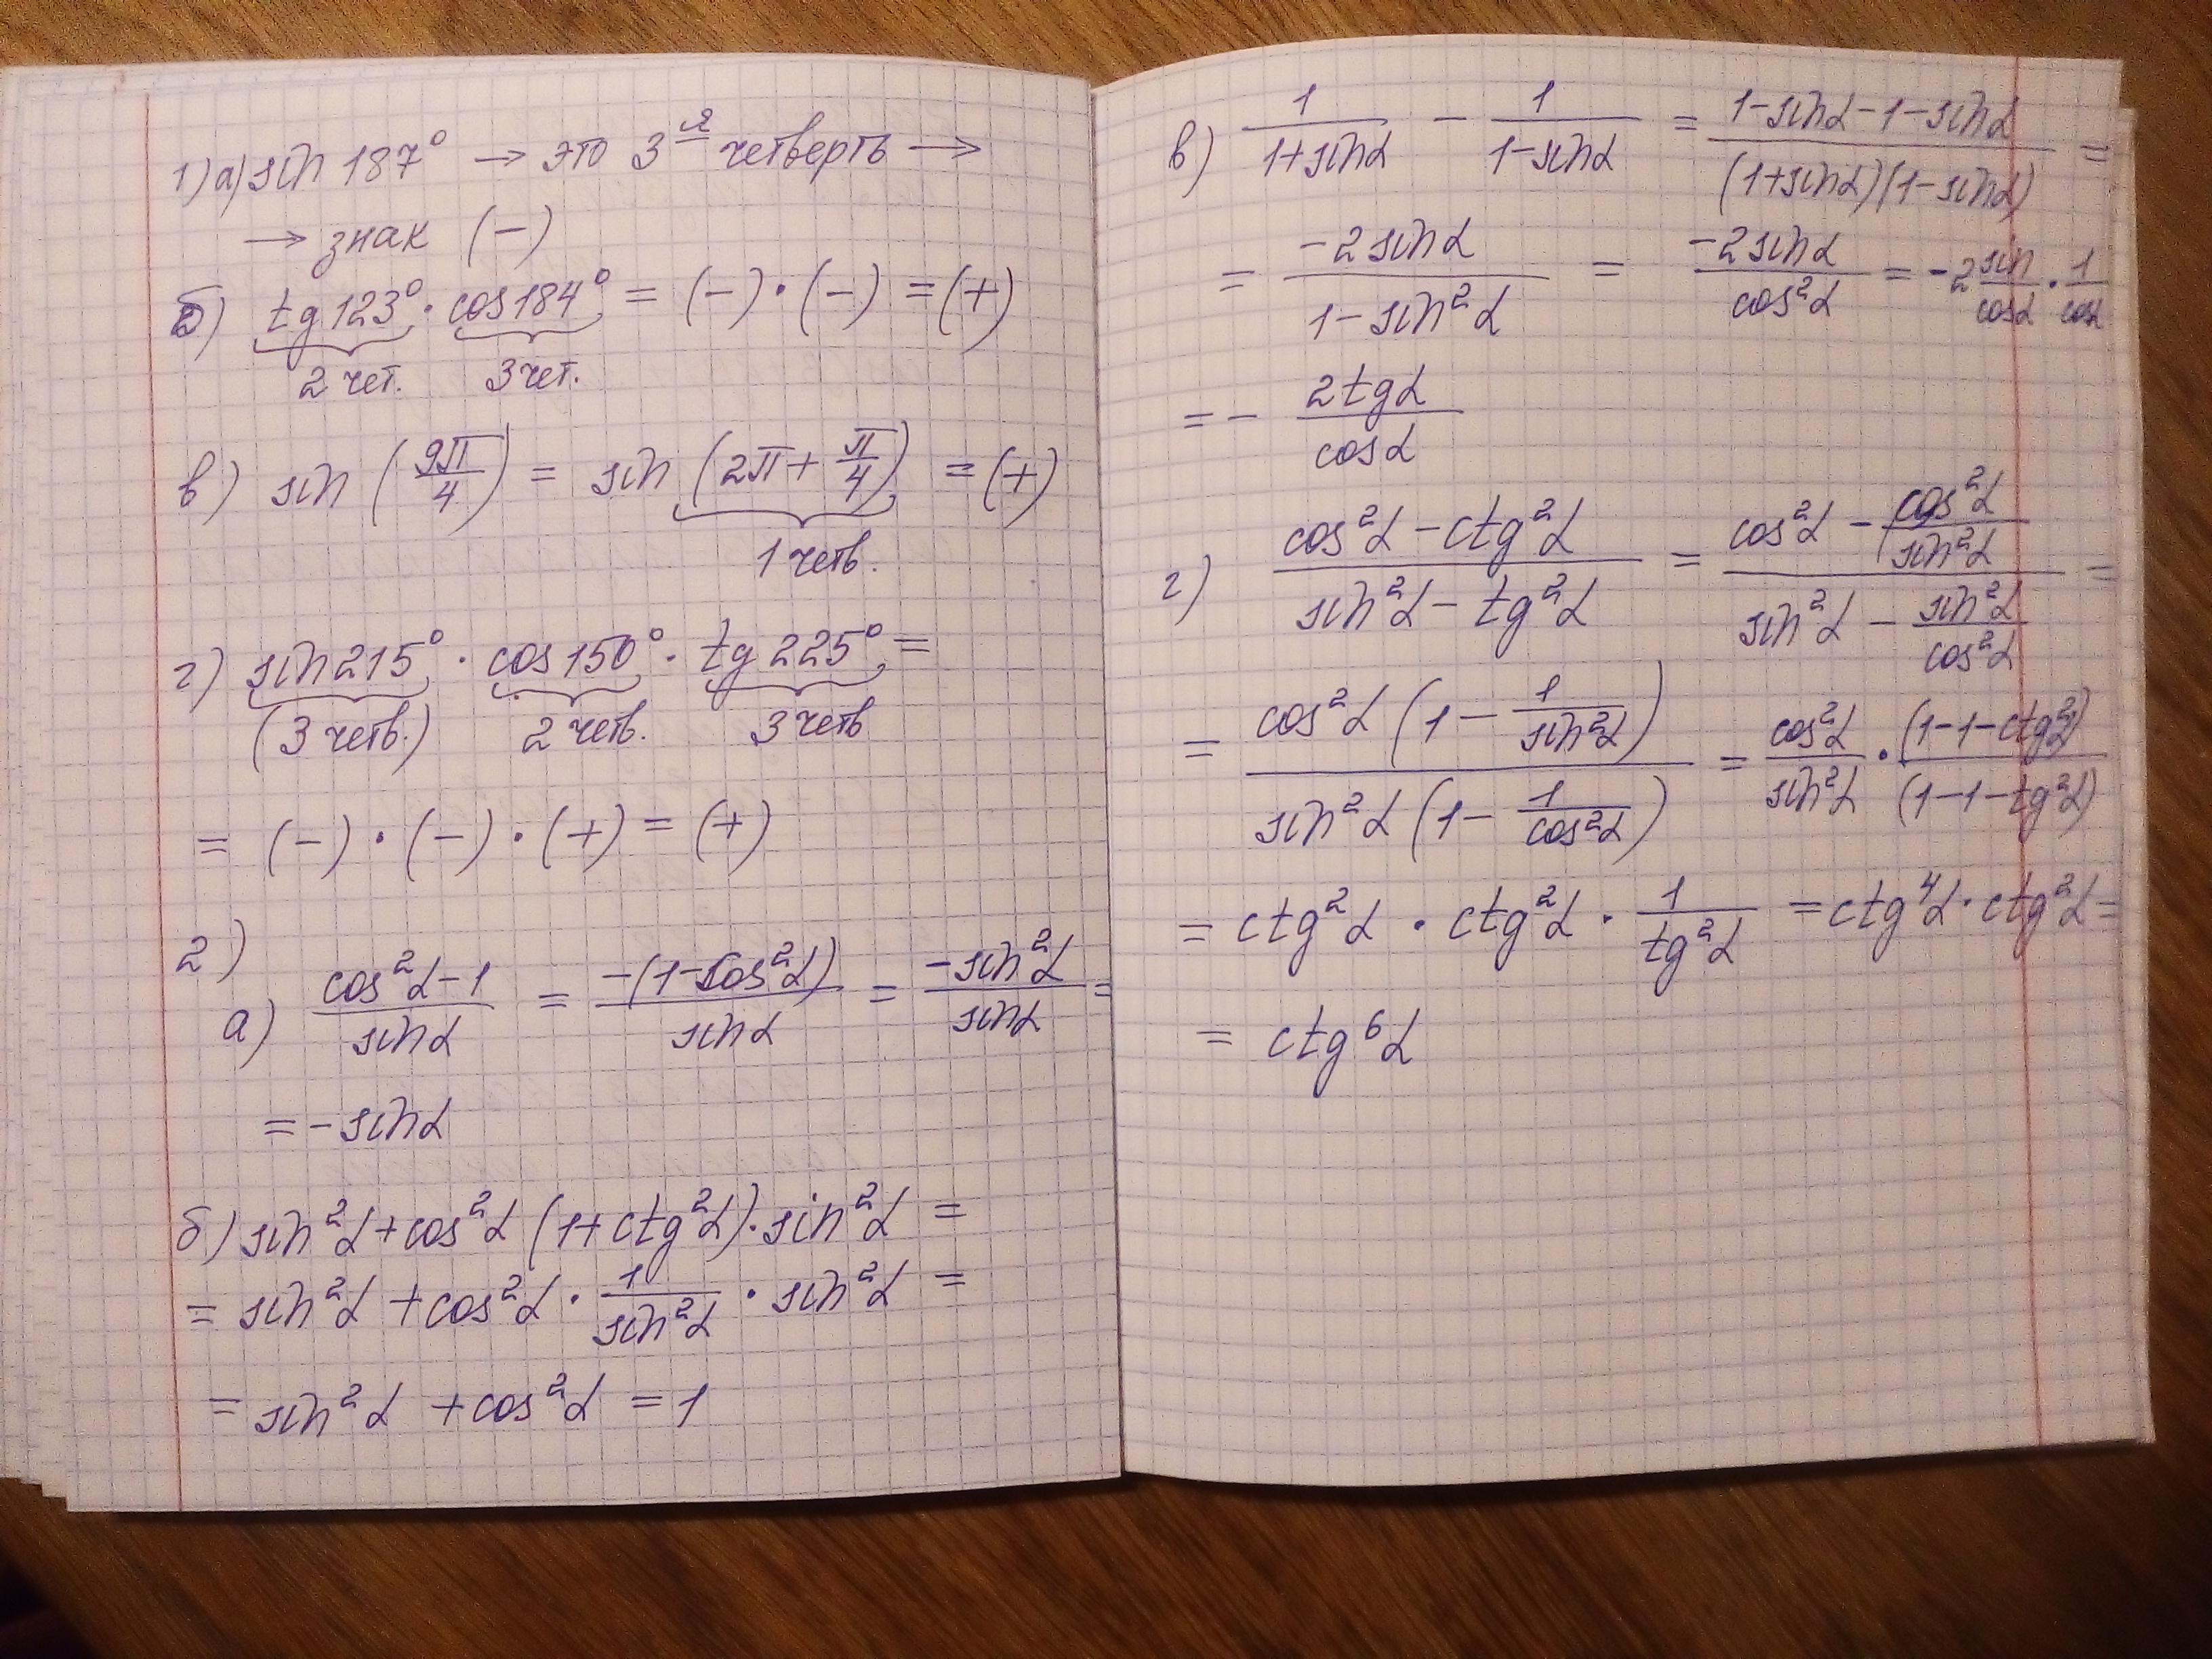 1) а) sin 187° → это 3я четверть →
→ знак (−)
б) tg 123° · cos 184° = (−) · (−) = (+)
2 чет. 3 чет.
в) sin (9π/4) = sin (2π + π/4) = (+)
1 четв.
г) sin 215° · cos 150° · tg 225° =
(3 четв.) 2 четв. 3 четв
= (−) · (−) · (+) = (+)
2)
а) (cos²α − 1)/sinα = −(1 − cos²α)/sinα = −sin²α/sinα =
= −sinα
б) sin²α + cos²α (1 + ctg²α) · sin²α =
= sin²α + cos²α · 1/sin²α · sin²α =
= sin²α + cos²α = 1
в) 1/(1+sinα) − 1/(1−sinα) = (1−sinα−1−sinα)/((1+sinα)(1−sinα)) =
= −2sinα/(1−sin²α) = −2sinα/cos²α = −2 sin/cosα · 1/cosα
= − 2tgα/cosα
г) (cos²α − ctg²α)/(sin²α − tg²α) = (cos²α − cos²α/sin²α)/(sin²α − sin²α/cos²α) =
= cos²α (1 − 1/sin²α)/(sin²α (1 − 1/cos²α)) = cos²α/sin²α · (1−1−ctg²α)/(1−1−tg²α)
= ctg²α · ctg²α · 1/tg²α = ctg⁴α · ctg²α =
= ctg⁶α